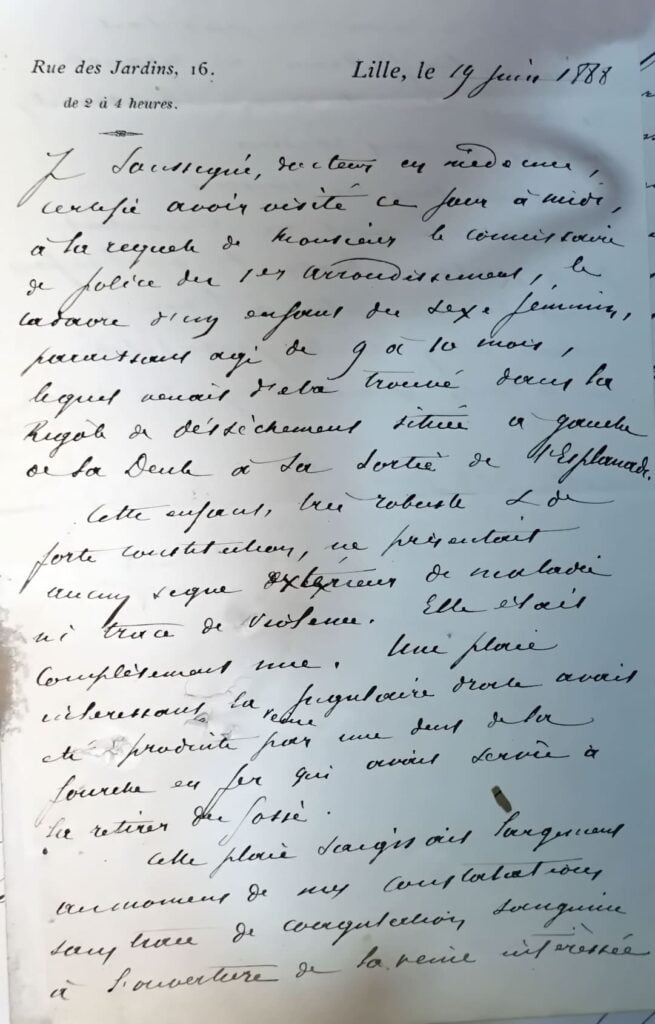 Rue des Jardins, 16.
de 2 à 4 heures.
Lille, le 19 juin 1888
Je soussigné, docteur en médecine,
certifie avoir visité ce jour à midi,
à la requete de Monsieur le commissaire
de police du 1er arrondissement, le
cadavre d'un enfant du sexe féminin,
paraissant agé de 9 à 10 mois,
lequel venait d'etre trouvé dans la
Rigole de désséchement située à gauche
de la Deule à la sortie de l'Esplanade.
Cette enfant, très robuste & de
forte constitution, ne présentait
aucun signe extérieur de maladie
ni trace de violence. Elle était
complètement nue. Une plaie
intéressant la veine jugulaire droite avait
été produite par une dent de la
fourche en fer qui avait servie à
la retirer du fossé.
Cette plaie saignait largement
au moment de mes constatations
sans trace de coagulation sanguine
à l'ouverture de la veine intéressée